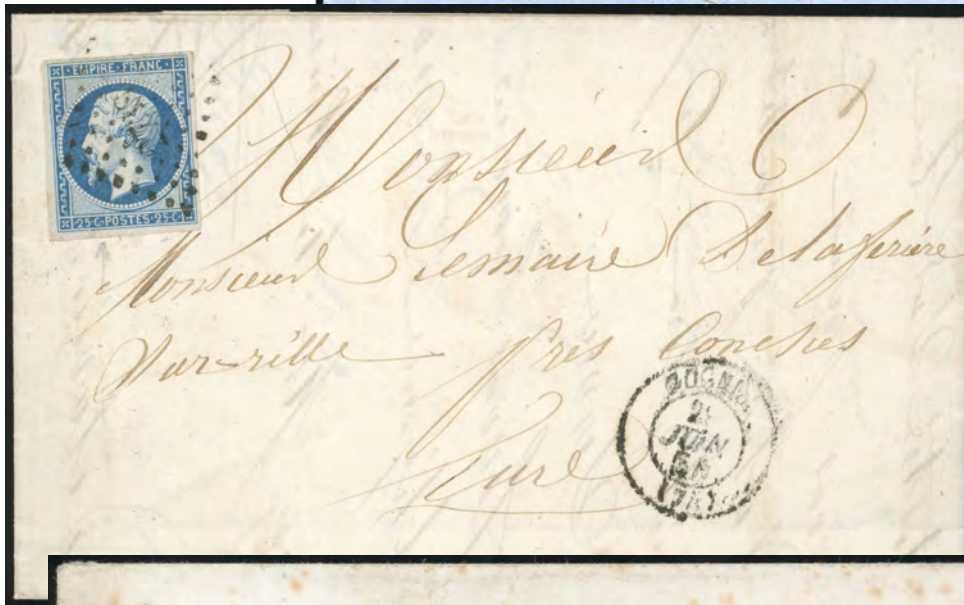 EMPIRE · FRANC ·
25·C·POSTES·25·C
Monsieur
Monsieur Lemaire Delaferière
près Conches
Eure
JUIN